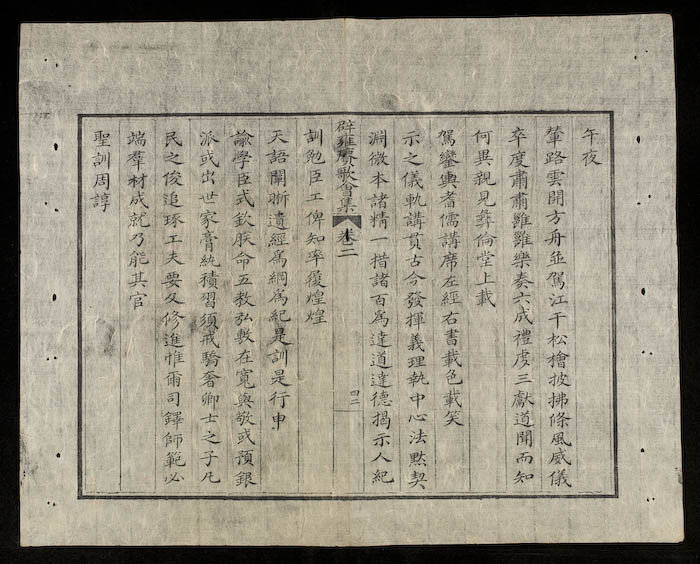 午夜
輦路雲開方舟並駕江干松檜披拂條風威儀
卒度肅肅雝雝樂奏六成禮虔三獻道聞而知
何異親見彝倫堂上載
駕鑾輿耆儒講席左經右書載色載笑
示之儀軌講貫古今發揮義理執中心法默契
淵微本諸精一措諸百為達道達德揭示人紀
辟雍賡歌會集 卷二 四二
訓勉臣工俾知率復煌煌
天語闡斯遺經為綱為紀是訓是行申
諭學臣式欽朕命五教弘敷在寬與敬或預銀
派或出世家膏紈積習須戒驕奢卿士之子凡
民之俊追琢工夫要久修進惟爾司鐸師範必
端羣材成就乃能其官
聖訓周諄